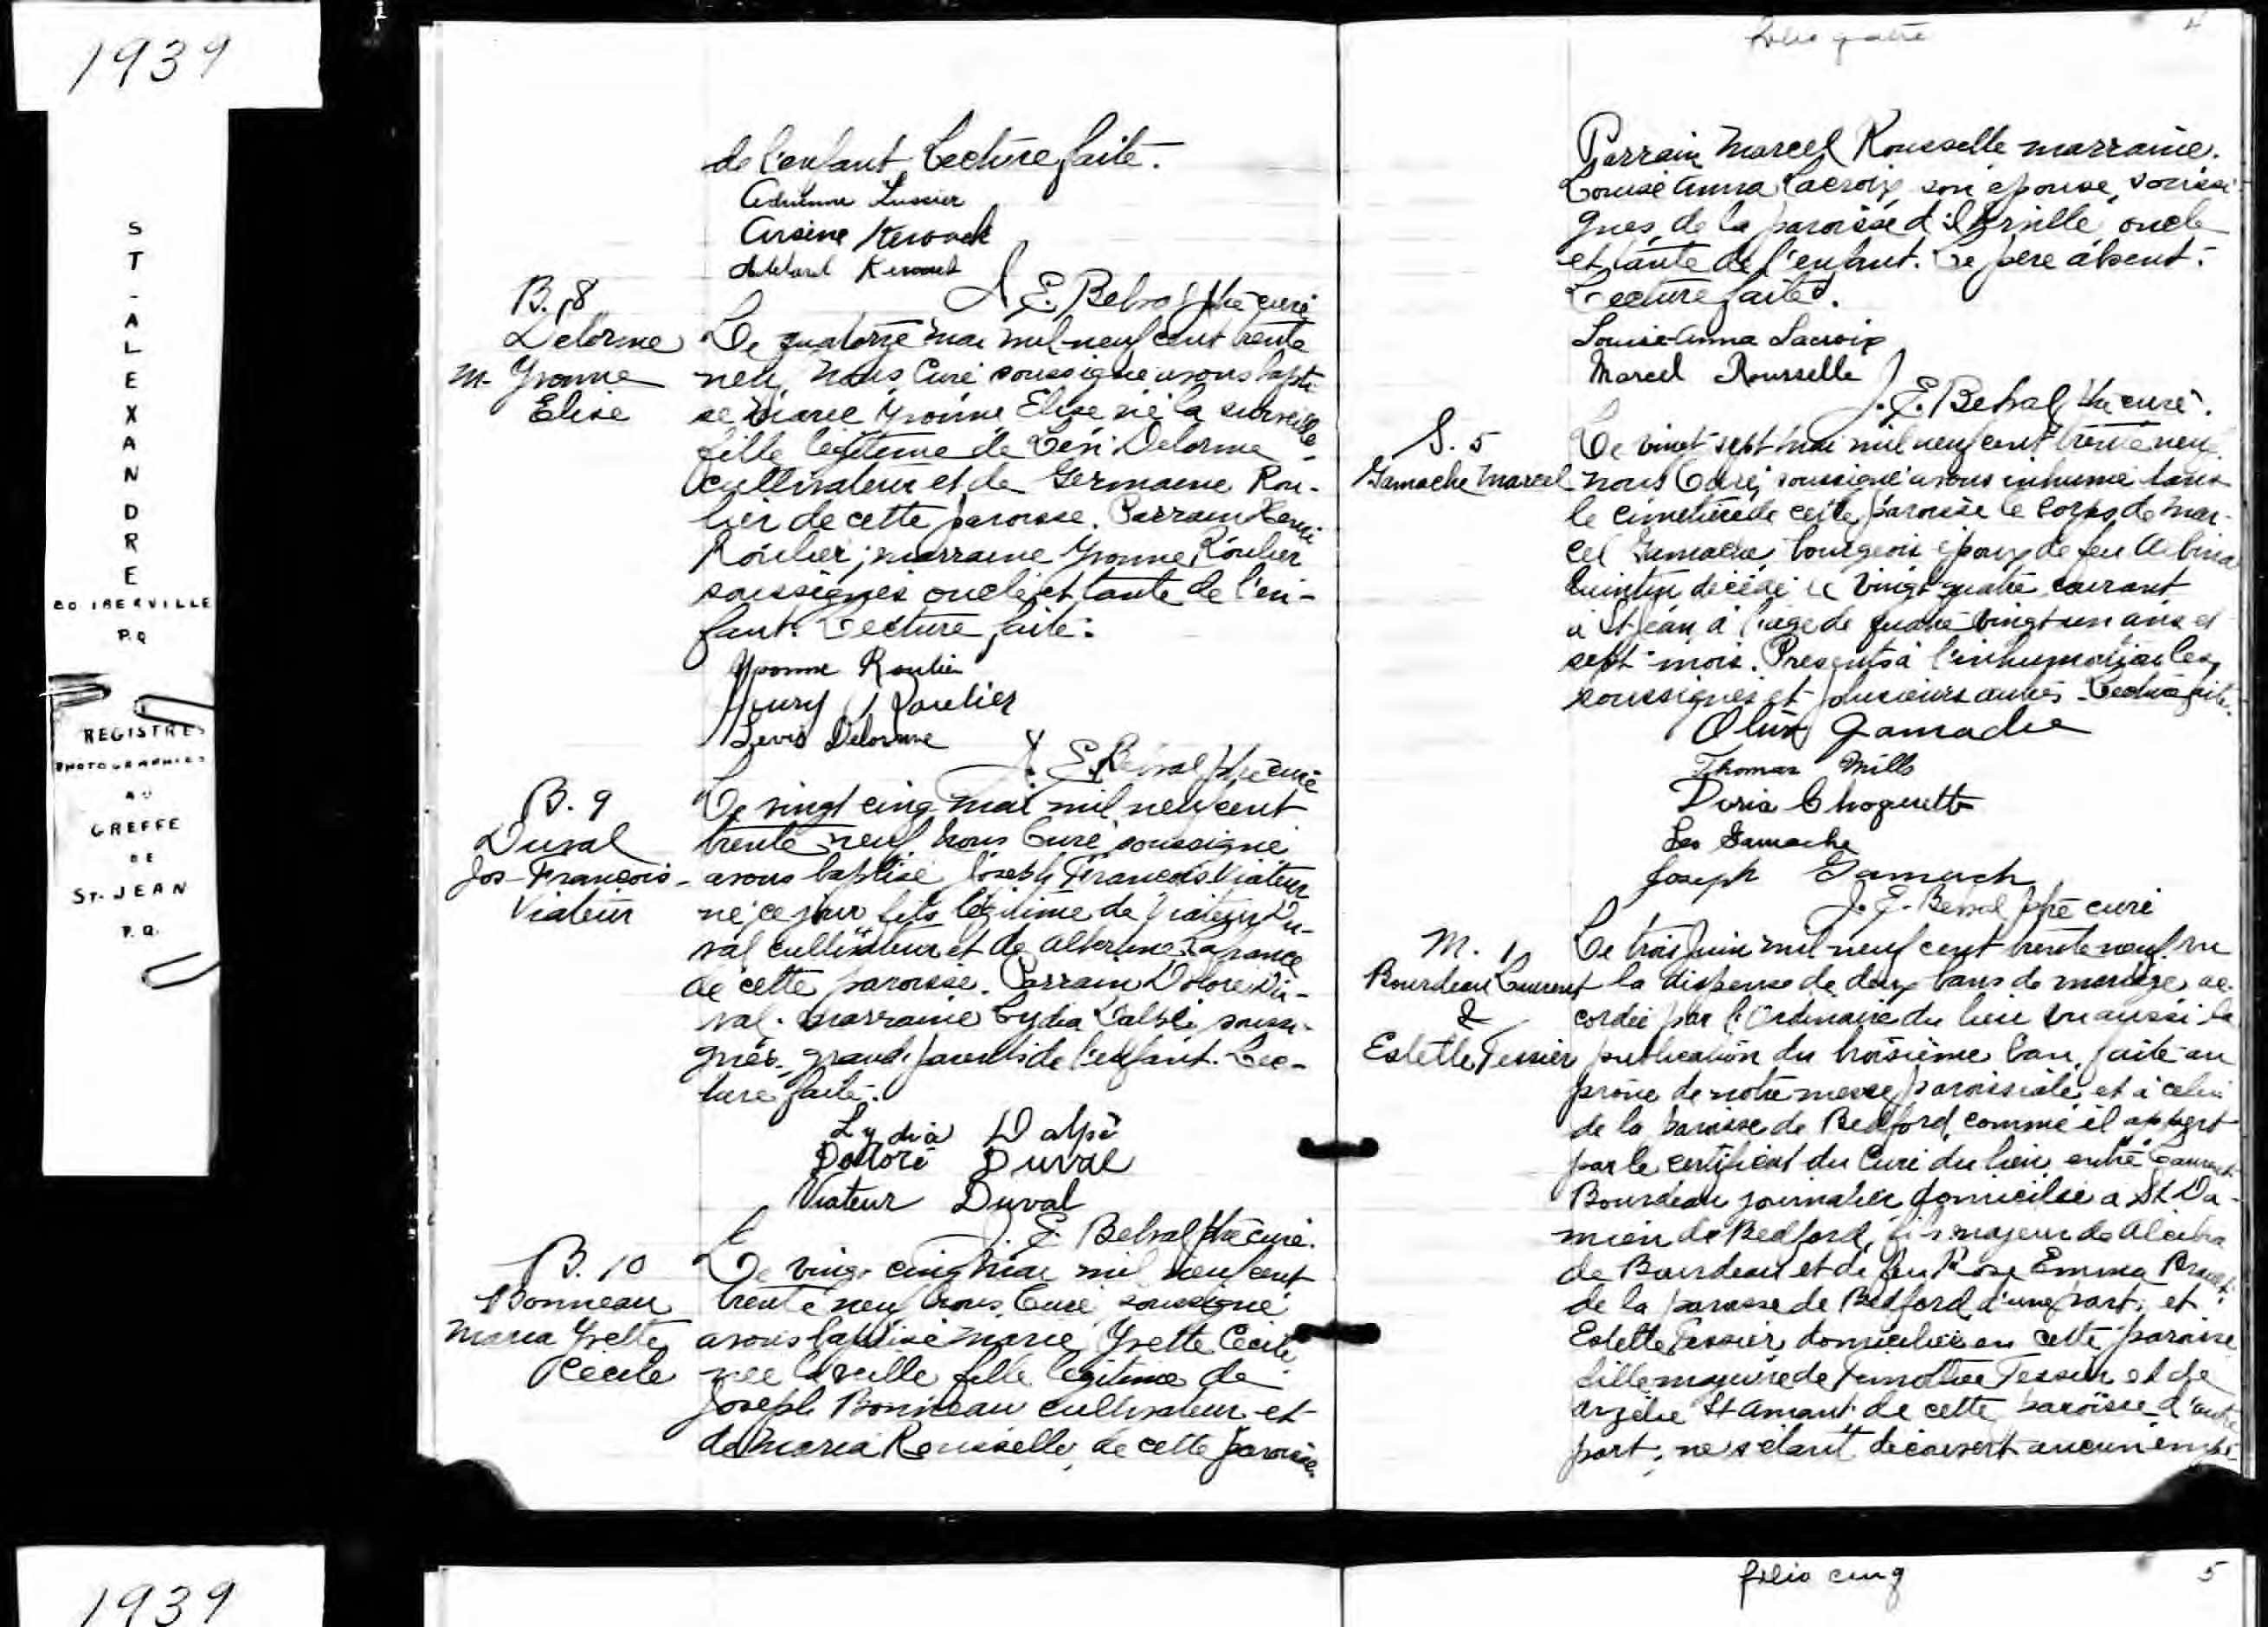 1939
ST-ALEXANDRE
CO IBERVILLE
P.Q
REGISTRES
PHOTOGRAPHIES
AU
GREFFE
DE
ST-JEAN
P.Q.
de l'enfant Lecture faite.
Adrienne Lussier
Arsène Kerouack
J. E. Belval ptre curé
B. 8
Delorme
M. Yvonne
Elise
Le quatorze mai mil neuf cent trente
neuf Nous Curé soussigné avons bapti
sé Marie Yvonne Elise née la surveille
fille légitime de Levi Delorme
cultivateur et de Germaine Rou-
lier de cette paroisse. Parrain Henri
Roulier; marraine Yvonne Roulier
soussignés oncle et tante de l'en-
fant. Lecture faite.
Yvonne Roulier
Henry Roulier
Levis Delorme
J. E. Belval ptre curé
B. 9
Duval
Jos-François-
Viateur
Le vingt cinq mai mil neuf cent
trente neuf Nous Curé soussigné
avons baptisé Joseph François Viateur
né ce jour fils légitime de Viateur Du-
val cultivateur et de Albertine Lafrance
de cette paroisse. Parrain Doloré Du-
val. marraine Lydia Dalpé soussi-
gnés, grands parents de l'enfant. Lec-
ture faite.
Lydia Dalpé
Doloré Duval
Viateur Duval
J. E. Belval ptre curé.
B. 10
Bonneau
Maria Yvette
Cécile
Le vingt cinq mai mil neuf cent
trente neuf Nous Curé soussigné
avons baptisé Marie Yvette Cécile
née la veille fille légitime de
Joseph Bonneau cultivateur et
de Maria Rousselle, de cette paroisse
folio quatre 4
Parrain Marcel Rousselle marraine.
Louise Anna Lacroix son épouse, soussi-
gnés, de la paroisse d'Iberville, oncle
et tante de l'enfant. Le père absent.
Lecture faite.
Louise-Anna Lacroix
Marcel Rousselle
J. E. Belval ptre curé.
S. 5
Gamache Marcel
Le vingt sept mai mil neuf cent trente neuf
nous Curé, soussigné avons inhumé dans
le cimetière de cette paroisse le corps de Mar-
cel Gamache, bourgeois époux de feu Albina
Quintin décédé le vingt quatre courant
à St Jean à l'âge de quatre vingt un ans et
sept mois. Présents à l'inhumation les
soussignés et plusieurs autres. Lecture faite.
Gamache
Thomas Mills
Doria Choquette
Leo Gamache
Joseph Gamach
J. E. Belval ptre curé
M. 1
Bourdeau Laurent
&
Estelle Tessier
Le trois juin mil neuf cent trente neuf, vu
la dispense de deux bans de mariage ac-
cordée par l'Ordinaire du lieu vu aussi la
publication du troisième ban, faite au
prône de notre messe paroissiale et à celui
de la paroisse de Bedford, comme il appert
par le certificat du Curé du lieu, entre Laurent
Bourdeau journalier domicilié à St Da-
mien de Bedford, fils majeur de Alcibia
de Bourdeau et de feu Rose Emma
de la paroisse de Bedford d'une part, et
Estelle Tessier domiciliée en cette paroisse
fille majeure de Timothée Tessier et de
Angélie St Amant de cette paroisse d'autre
part; ne s'étant découvert aucun empê-
1939
folio cinq 5